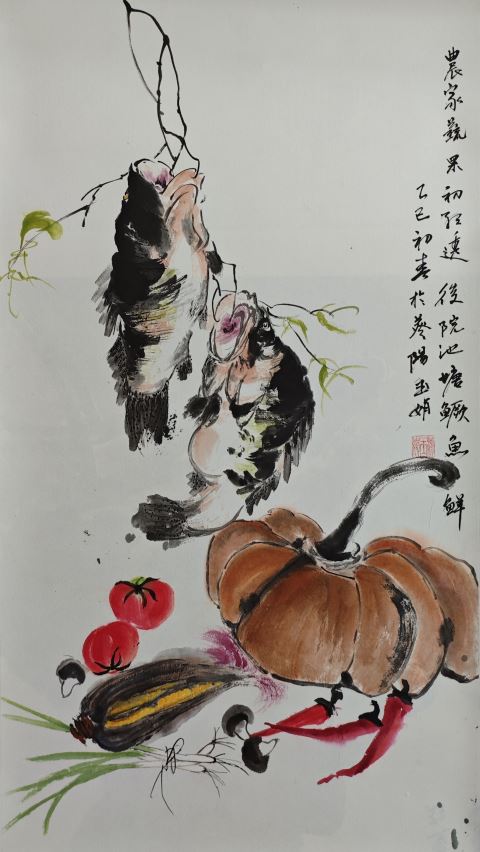 農家蔬果初红透 後院池塘鳜魚鮮
乙巳初春於葵陽玉娟